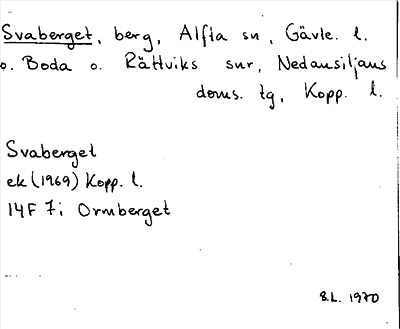 Svaberget, berg, Alfta sn, Gävle. l.
o. Boda o. Rättviks snr, Nedansiljans
doms. tg, Kopp. l.
Svaberget
ek (1969) Kopp. l.
14F 7i Ormberget
B.L. 1970